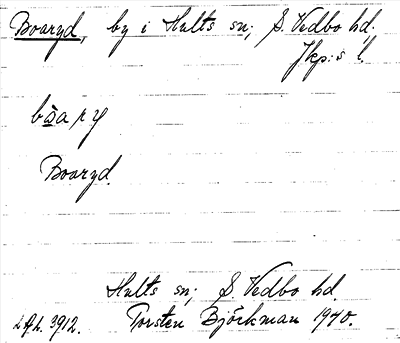 Boaryd, by i Hults sn; S. Vedbo hd.
Jkp:s l.
bòary
Boaryd.
Hults sn; S. Vedbo hd.
Torsten Björkman 1940.
3912.